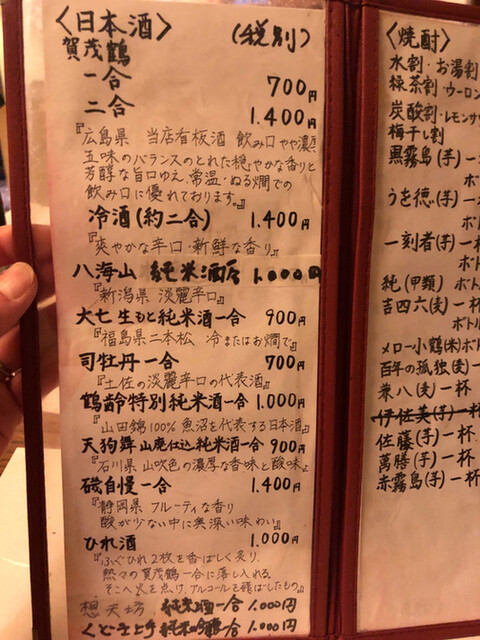 〈日本酒〉 (税別)
賀茂鶴
一合 700円
二合 1.400円
『広島県 当店看板酒 飲み口やや濃
五味のバランスのとれた穏やかな香りと
芳醇な旨口ゆえ、常温・ぬる燗での
飲み口に優れております。』
冷酒(約二合) 1.400円
『爽やかな辛口・新鮮な香り』
八海山 純米酒 1.000円
『新潟県 淡麗辛口』
大七 生もと純米酒一合 900円
『福島県二本松 冷またはお燗で』
司牡丹一合 700円
『土佐の淡麗辛口の代表酒』
鶴齢特別純米酒一合 1.000円
『山田錦100% 魚沼を代表する日本酒』
天狗舞 山廃仕込純米酒一合 900円
『石川県 山吹色の濃厚な香味と酸味』
磯自慢一合 1.400円
『静岡県 フルーティな香り
酸が少ない中に奥深い味わい』
ひれ酒 1.000円
『ふぐひれ2枚を香ばしく炙り、
熱々の賀茂鶴一合に落し入れる。
そこへ火を点け、アルコールを飛ばしたもの』
想天坊 純米酒一合 1.000円
くどき上手 純米吟醸一合 1.000円
〈焼酎〉
水割・お湯割
緑茶割・ウーロン
炭酸割・レモンサ
梅干し割
黒霧島(芋)一
ボ
うを徳(芋)一
ボト
一刻者(芋)一
ボト
純(甲類)ボト
吉四六(麦)一杯
ボトル
メロー小鶴(米)ボト
百年の孤独(麦)一
兼八(麦)一杯
伊佐美(芋)一杯
佐藤(芋)一杯
萬膳(芋)一杯
赤霧島(芋)一杯